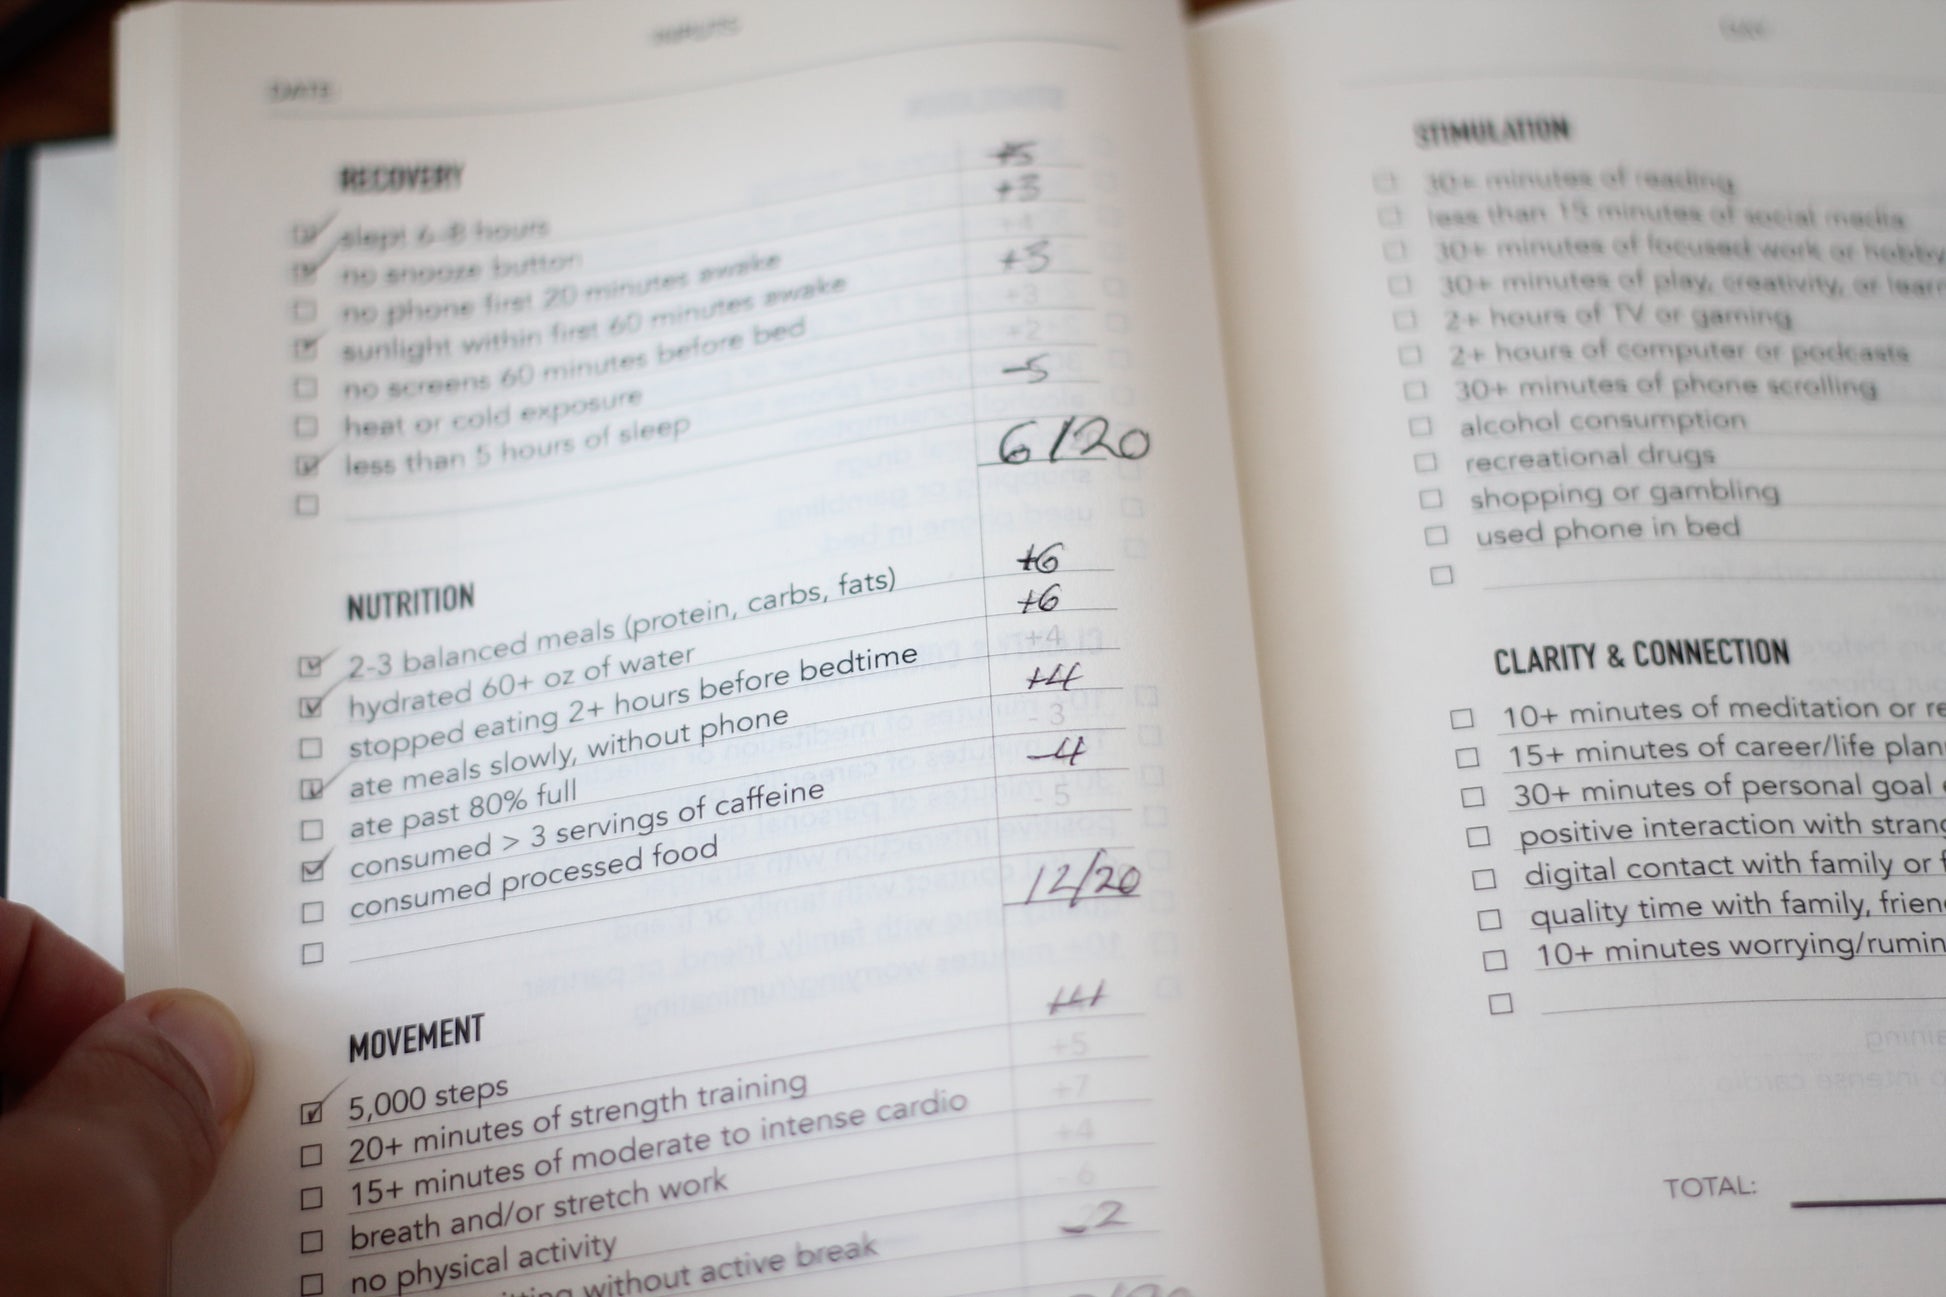 DATE
RECOVERY
slept 6-8 hours +5
no snooze button +3
no phone first 20 minutes awake +4
sunlight within first 60 minutes awake +3
no screens 60 minutes before bed +3
heat or cold exposure +2
less than 5 hours of sleep -5
6/20
NUTRITION
2-3 balanced meals (protein, carbs, fats) +6
hydrated 60+ oz of water +6
stopped eating 2+ hours before bedtime +4
ate meals slowly, without phone +4
ate past 80% full - 3
consumed > 3 servings of caffeine -4
consumed processed food - 5
12/20
MOVEMENT
5,000 steps +4
20+ minutes of strength training +5
15+ minutes of moderate to intense cardio +7
breath and/or stretch work +4
no physical activity - 6
without active break -2
STIMULATION
30+ minutes of reading
less than 15 minutes of social media
30+ minutes of focused work or hobby
30+ minutes of play, creativity, or
2+ hours of TV or gaming
2+ hours of computer or podcasts
30+ minutes of phone scrolling
alcohol consumption
recreational drugs
shopping or gambling
used phone in bed
CLARITY & CONNECTION
10+ minutes of meditation or
15+ minutes of career/life
30+ minutes of personal goal
positive interaction with
digital contact with family or
quality time with family,
10+ minutes
TOTAL: